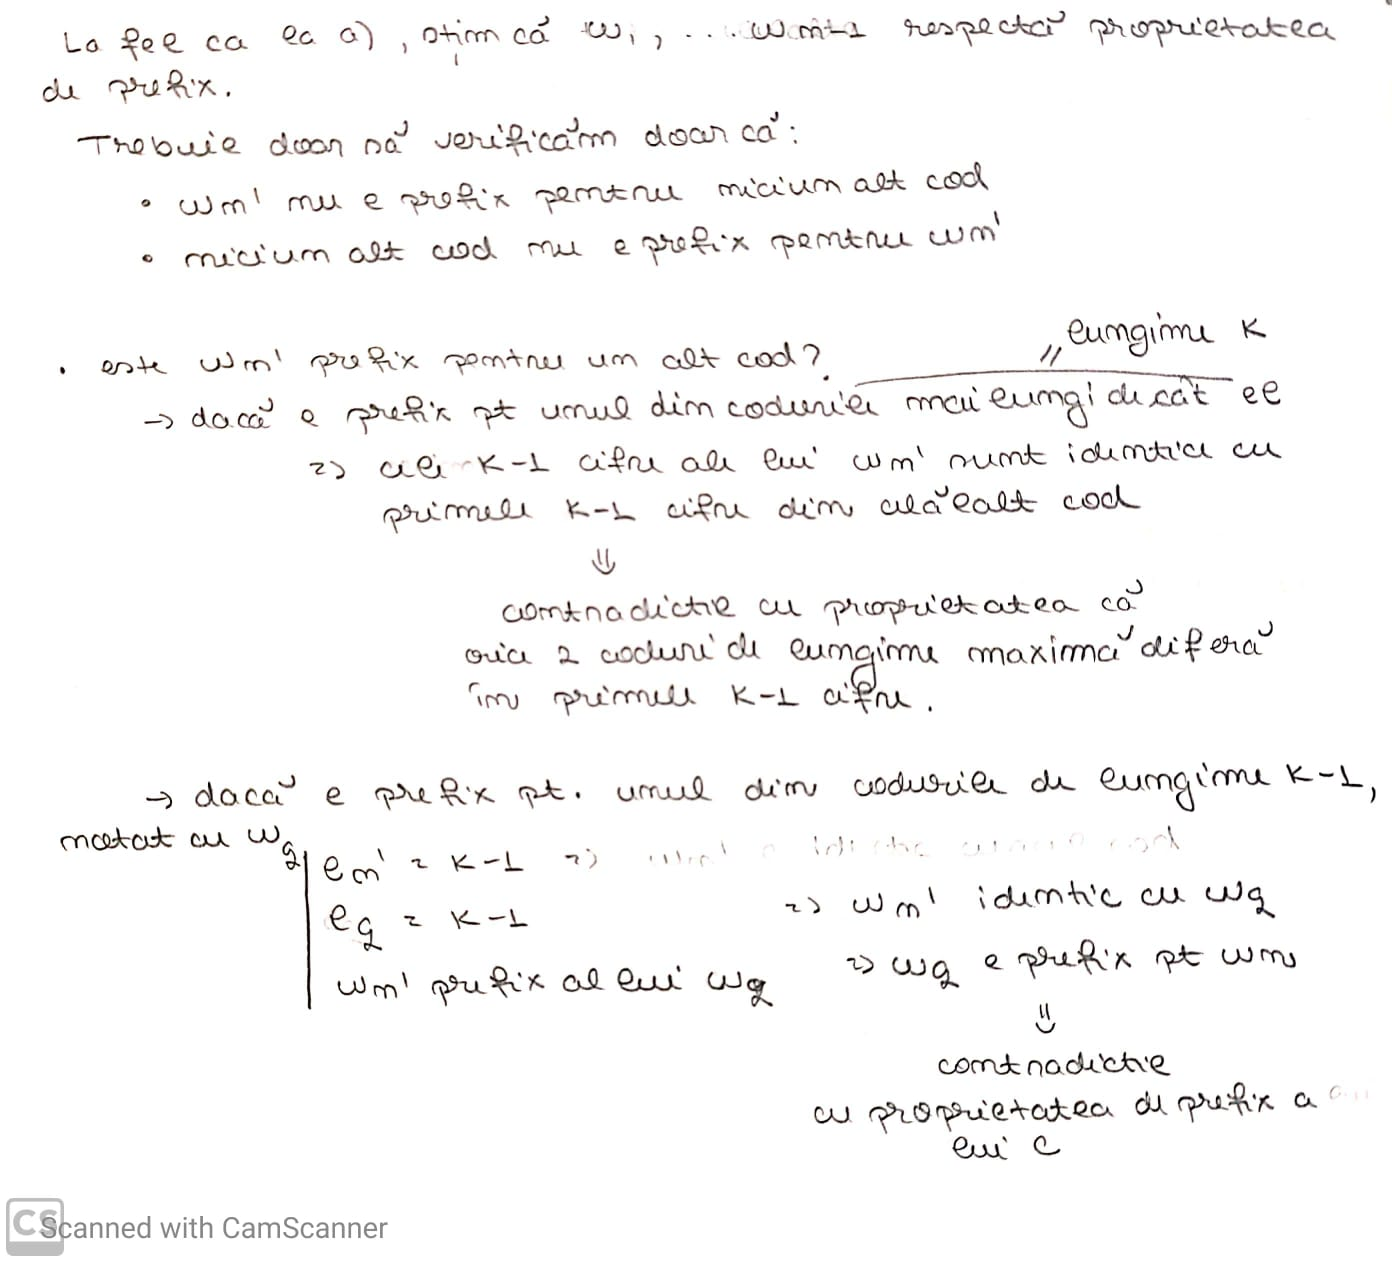 La fel ca la a), știm că w₁, ... wn-1 respectă proprietatea
de prefix.
Trebuie doar să verificăm doar că:
• wn' nu e prefix pentru niciun alt cod
• niciun alt cod nu e prefix pentru wn'
lungime k
• este wn' prefix pentru un alt cod?
→ dacă e prefix pt unul din codurile mai lungi decât el
=> cele k-1 cifre ale lui wn' sunt identice cu
primele k-1 cifre din celălalt cod
⇓
contradictie cu proprietatea că
orice 2 coduri de lungime maximă diferă
în primele k-1 cifre.
→ dacă e prefix pt. unul din codurile de lungime k-1,
notat cu wq
ln' = k-1 =>
lq = k-1 => wn' identic cu wq
wn' prefix al lui wq => wq e prefix pt wn
⇓
contradictie
cu proprietatea de prefix a
lui C
CS Scanned with CamScanner